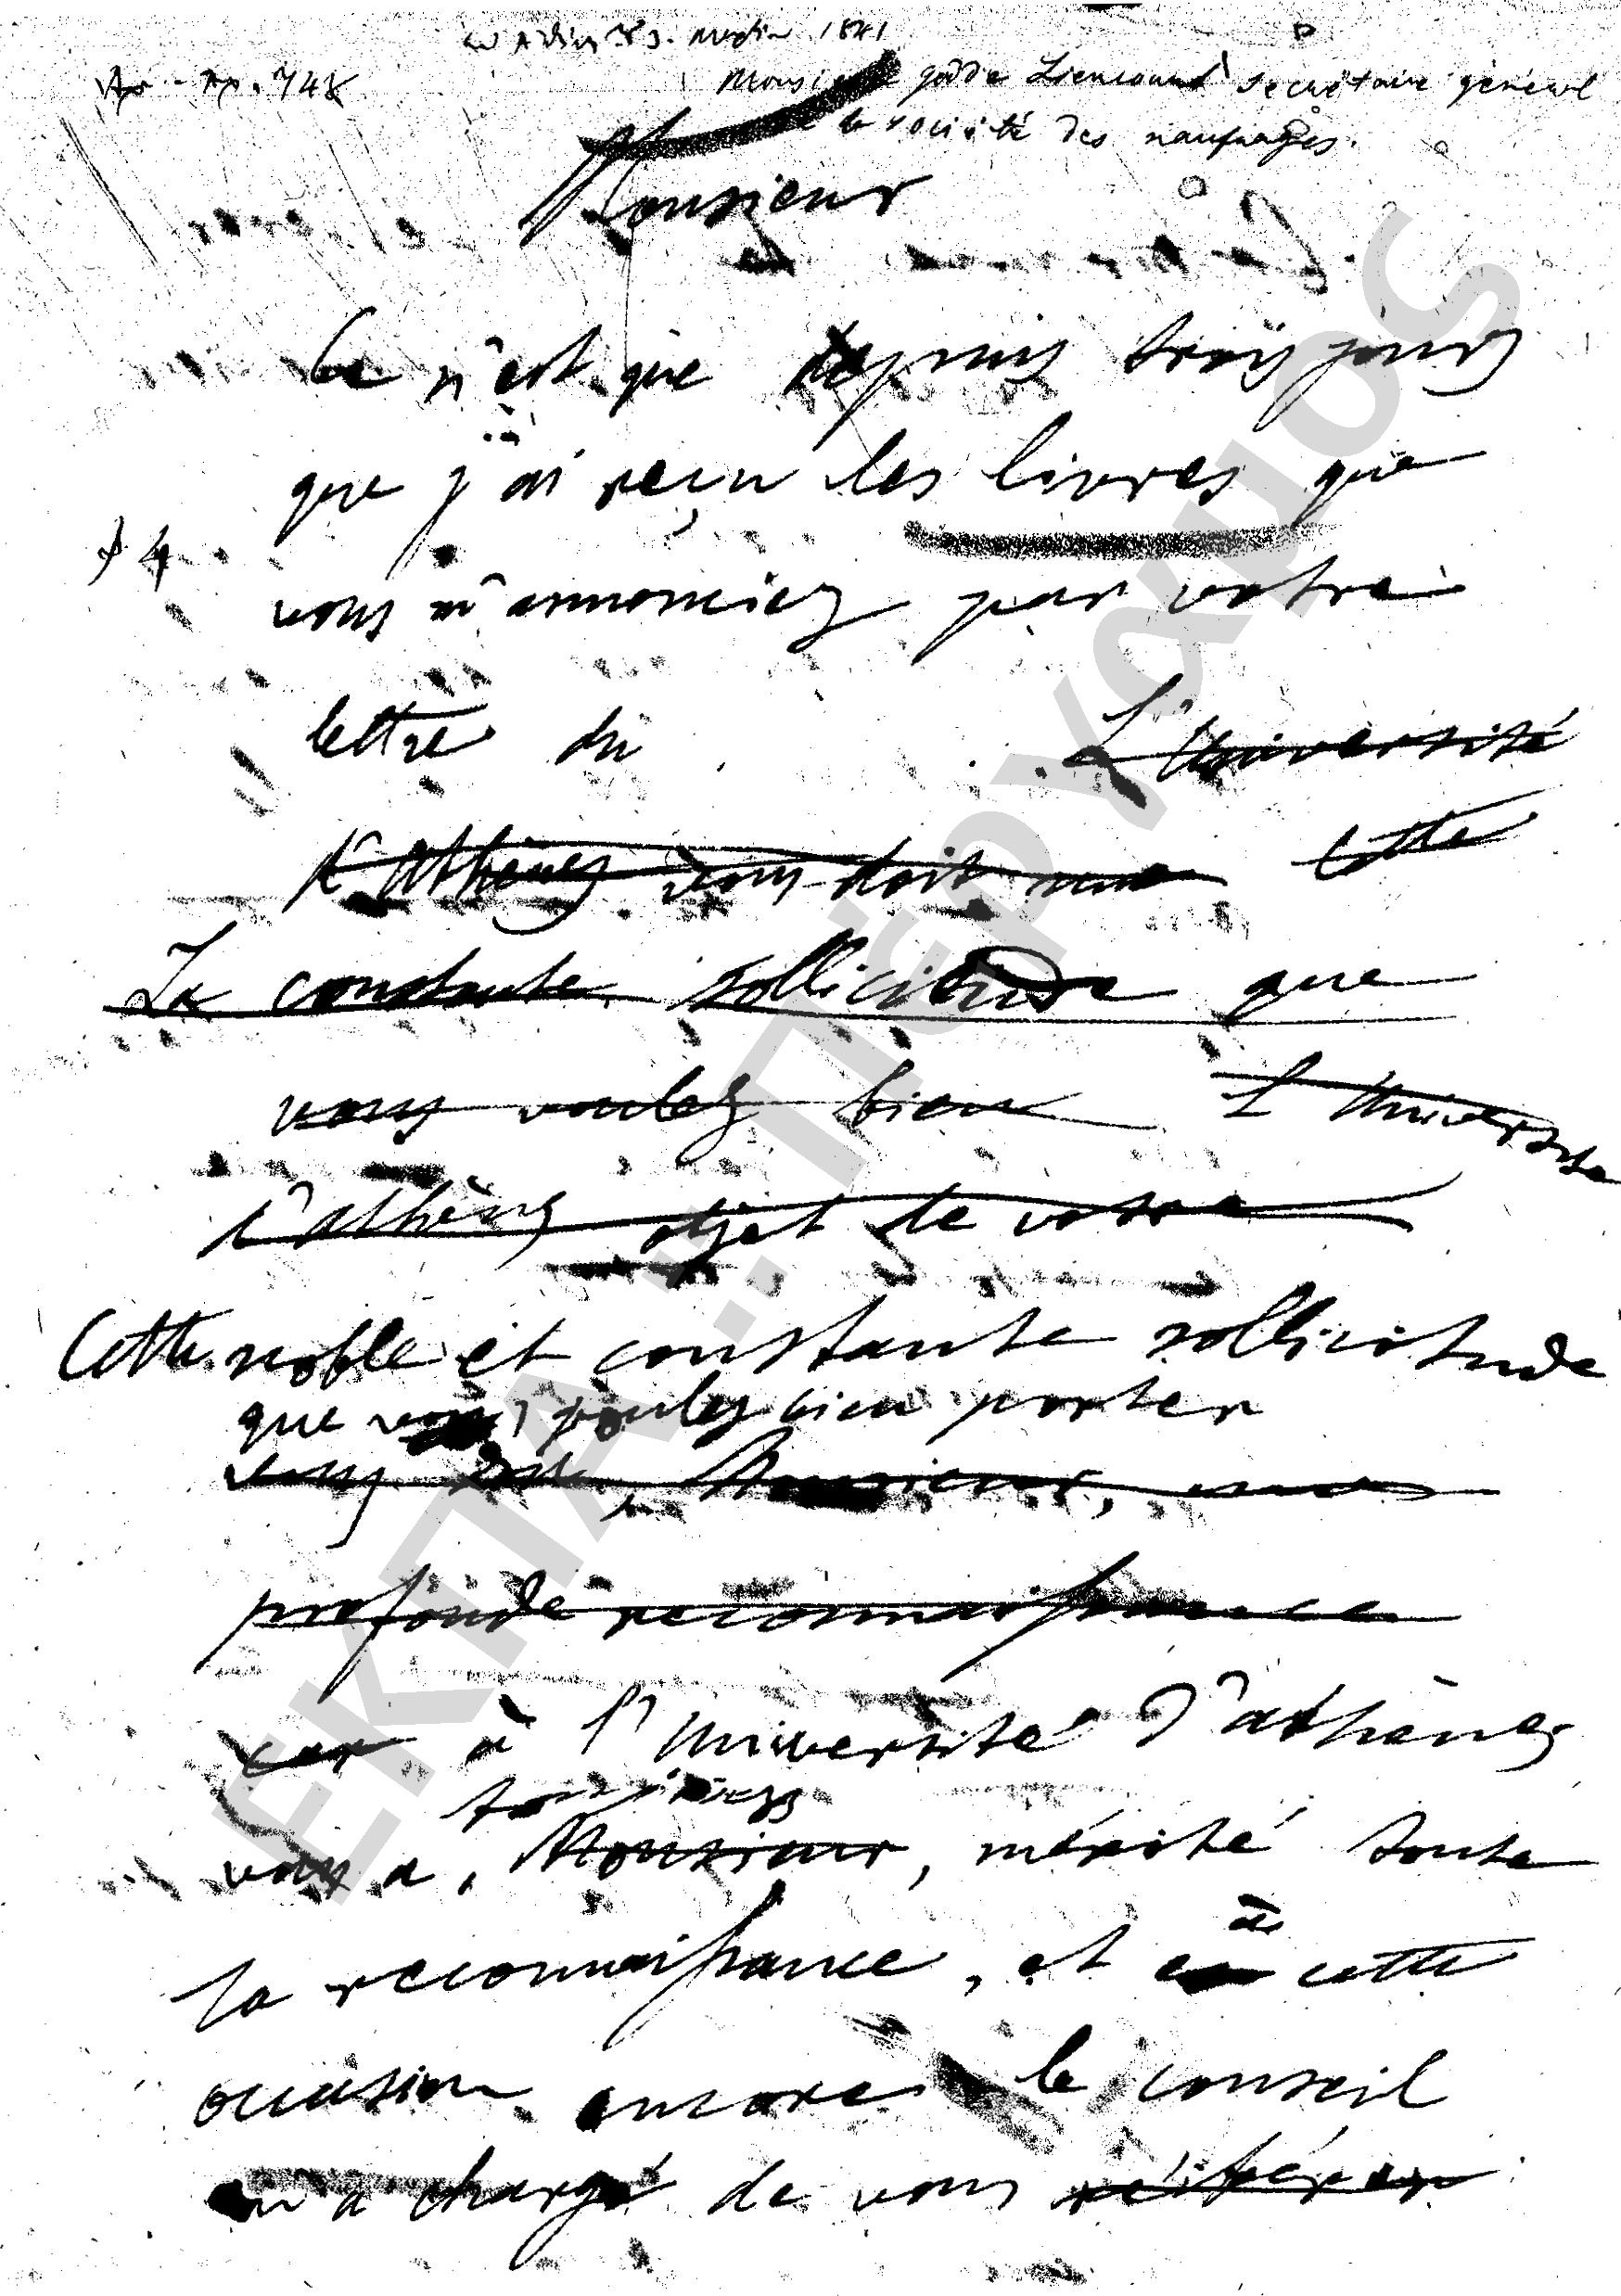 1841
Αρ. πρ. 748
Monsieur Liencourt Secrétaire général
la société des naufrages.
Monsieur
Ce n'est que depuis trois jours
que j'ai reçu les livres que
vous m'annonciez par votre
lettre du L'Université
d'Athènes vous doit une cette
La constante sollicitude que
vous voulez bien L'Université
d'Athènes objet de votre
Cette noble et constante sollicitude
que vous voulez bien porter
vous Monsieur, une
profonde reconnaissance
à l'Université d'Athènes
toujours
vous a, Monsieur, mérité toute
sa reconnaissance, et en à cette
occasion encore le conseil
m'a chargé de vous réitérer
ΕΚΠΑ.. Ιστορικό Αρχείο